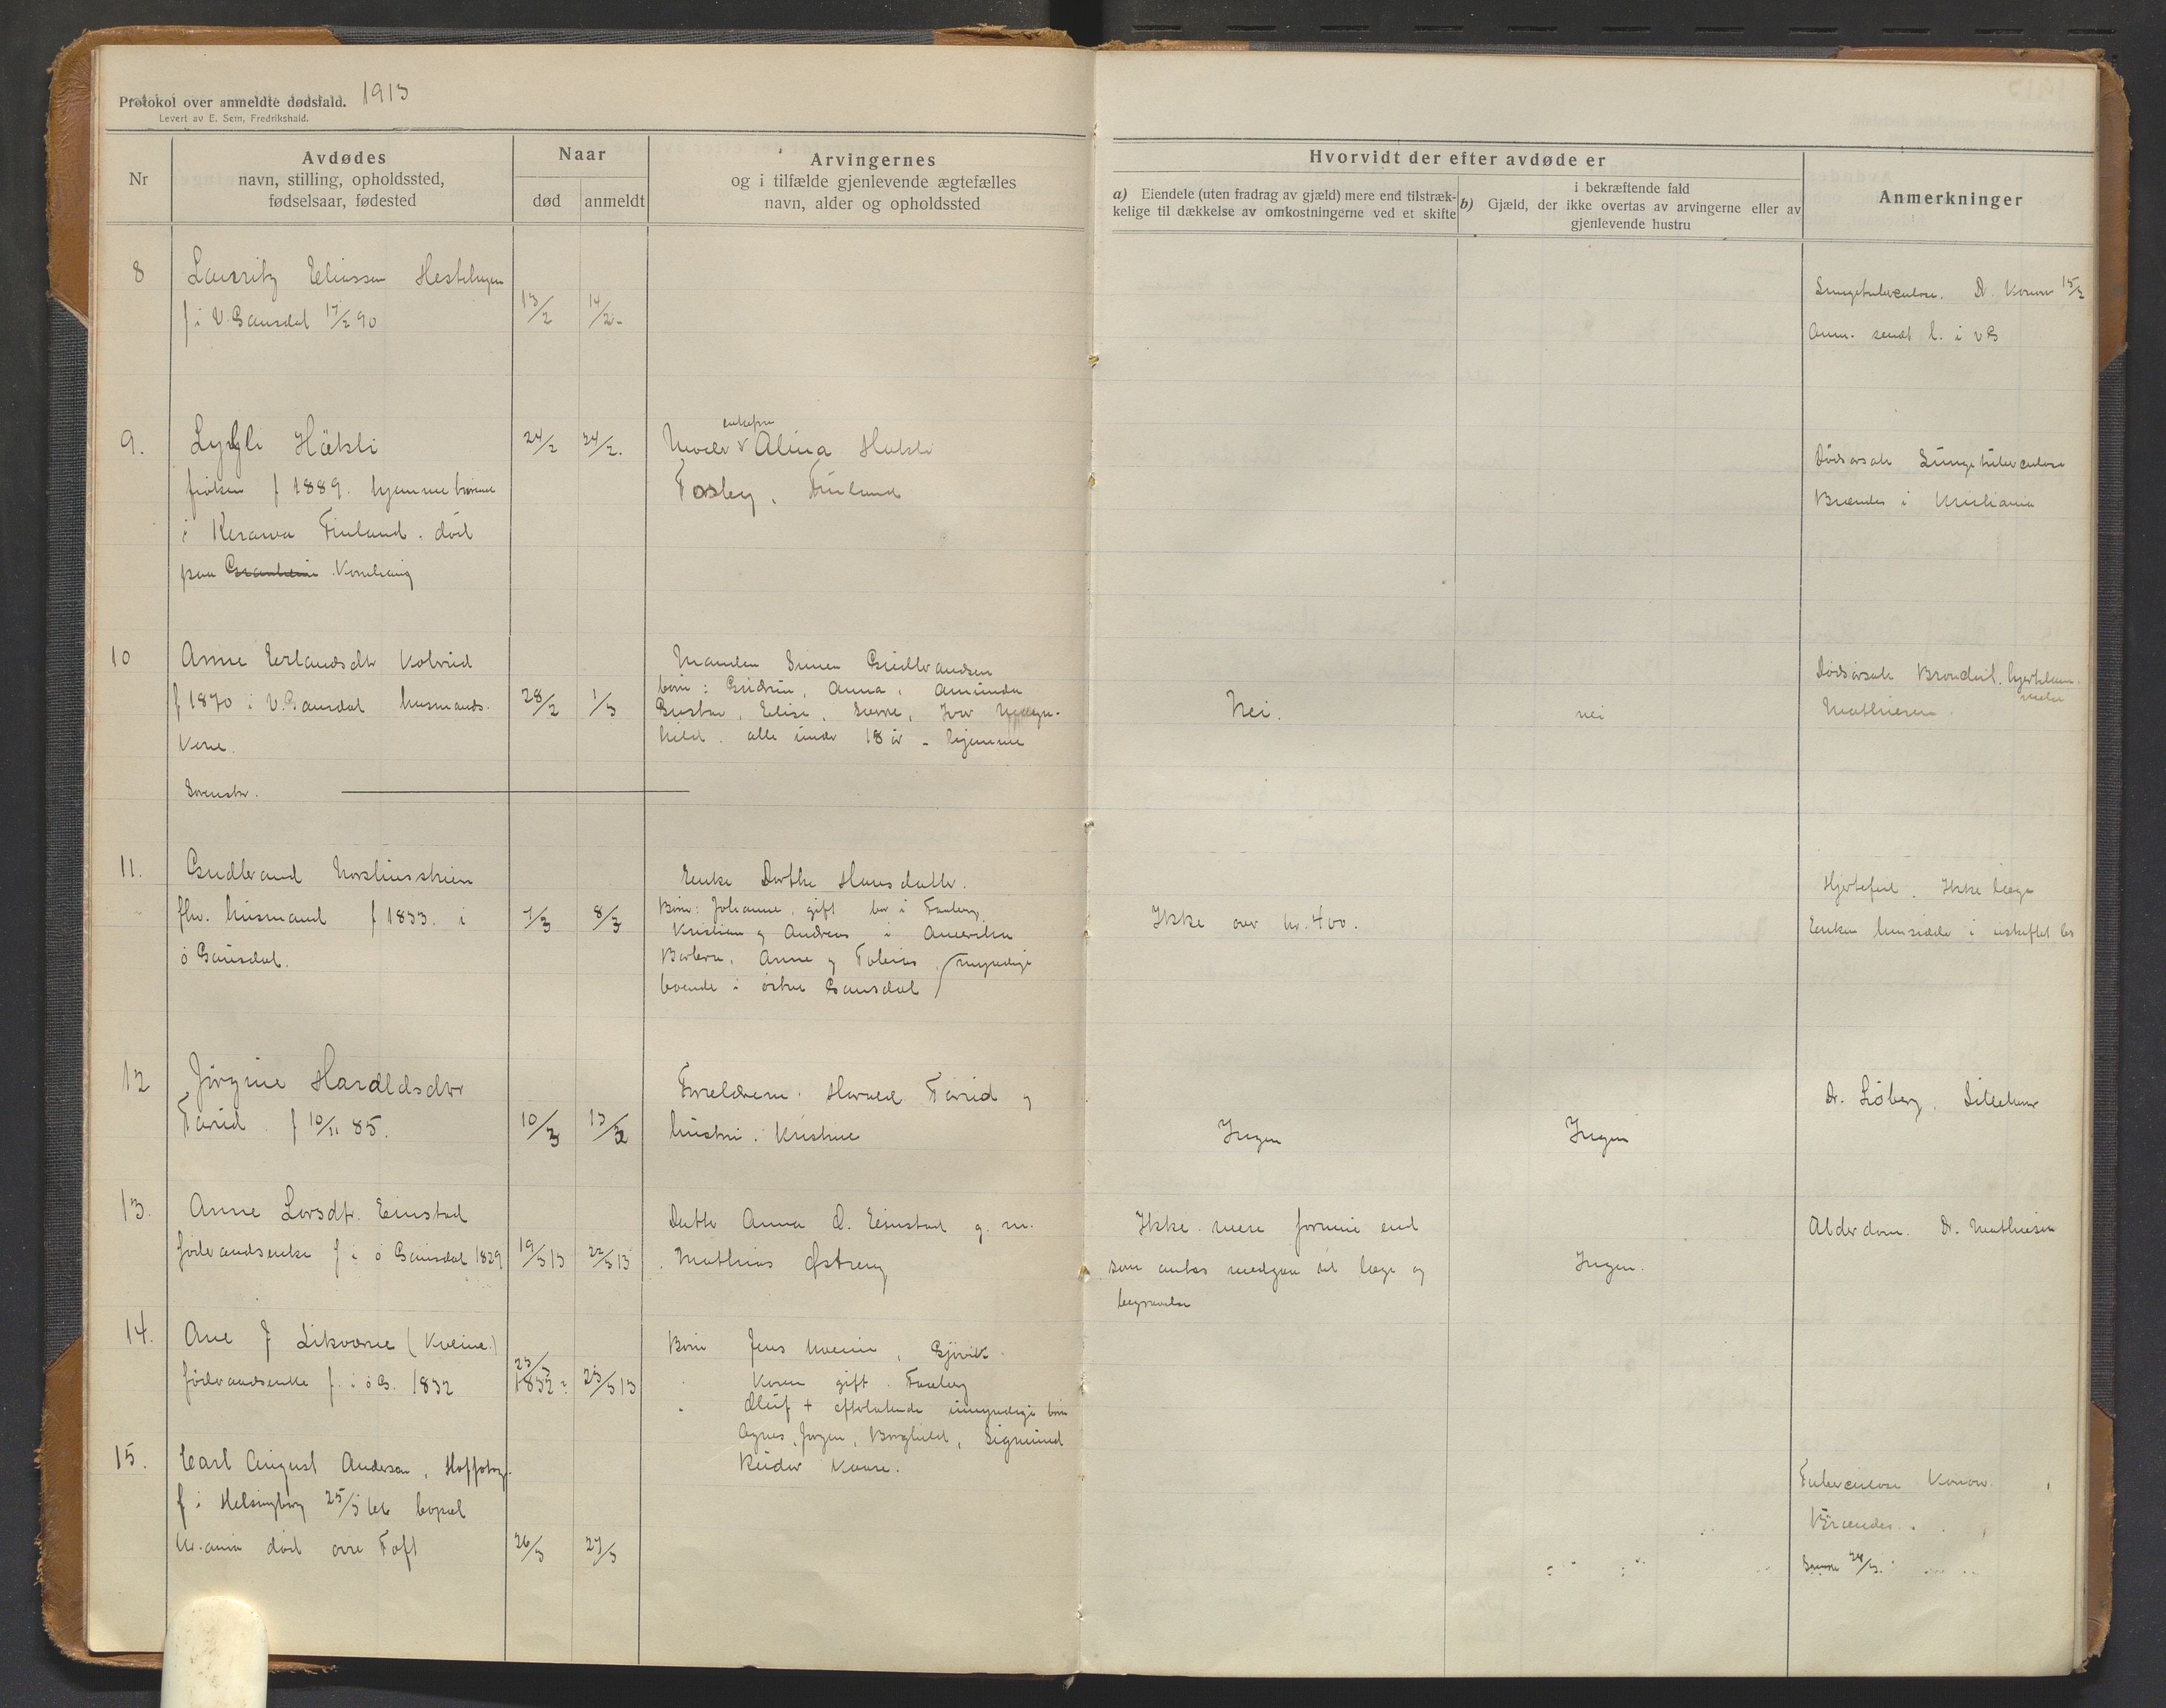 Protokol over anmeldte dødsfald. 1913
Levert av E. Sem, Fredrikshald.
Nr
Avdødes
navn, stilling, opholdssted,
fødselsaar, fødested
Naar
død
anmeldt
Arvingernes
og i tilfælde gjenlevende ægtefælles
navn, alder og opholdssted
Hvorvidt der efter avdøde er
a) Eiendele (uten fradrag av gjæld) mere end tilstræk-
kelige til dækkelse av omkostningerne ved et skifte
i bekræftende fald
b) Gjæld, der ikke overtas av arvingerne eller av
gjenlevende hustru
Anmerkninger
8
Lauritz Eliassen
f i V. Gausdal 17/2 90
13/2
14/2
Lungetuberculose. Dr. Konow 15/2
Anm. sendt l. i v G
9.
Lyyli Häkli
frøken f 1889. hjemmehørende
i Kerawa Finland. død
paa Granheim Kornhaug
24/2
24/2.
Moder enkefru Alina
Fosby, Finland
Dødsårsak Lungetuberculose
Brændes i Kristiania
10
Anne Erlandsdtr
f 1870 i V. Gausdal husmands-
kone.
28/2
1/3
Manden Simen Gudbrandsen
børn: Gudrun, Anna, Aminda
Gustav, Elise, Signe, Ivar
alle under 18 år - hjemme
Nei.
nei
Dødsårsak
Mathiesen
11.
Gudbrand
fhv. husmand f 1833. i
ø Gausdal.
7/3
8/3
Enke Dorthe Hansdatter.
Børn: Johanne, gift bor i Faaberg
Kristian og Andreas i Amerika
Anne og myndige
boende i østre Gausdal
Ikke over kr. 400.
Hjertefeil. Ikke læge
Enken hensidder i uskiftet bo
12
Jørgine Haraldsdtr
f 10/11 85.
10/3
13/3
Forældrene. Harald og
hustru. Kristine
Ingen
Ingen
Dr. Lillehamr
13.
Anne Larsdtr. Einstad
føderaadsenke f i ø Gausdal 1829
19/3 13
22/3 13
Datter Anna O. Einstad g. m.
Mathias Østreng
Ikke mere formue end
som antas medgaa til læge og
begravelse
Ingen.
Alderdom. Dr. Mathiesen
14.
Ane J
føderaadsenke f. i ø G. 1832
23/3
1832
25/3 13
Børn Jens Gjøvik
Karen gift. Faaberg
Oluf + efterlatende umyndige børn
Agnes, Jørgen, Borghild, Sigmund
Reidar Kaare.
15.
Carl August Anderson,
f i Helsingborg 25/5 bopæl
Kr.ania død øvre Toft
26/3
27/3
Tuberculose Konow.
Brændes.
28/3.